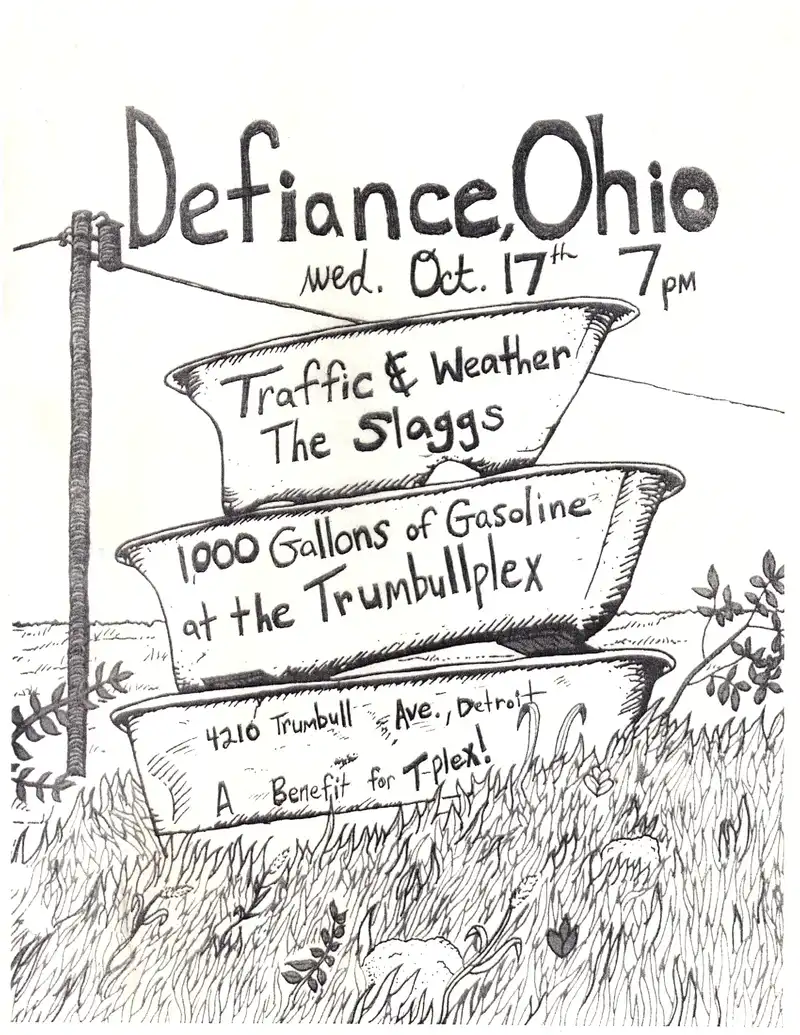 Defiance, Ohio
Wed. Oct. 17th 7PM
Traffic & Weather
The Slaggs
1,000 Gallons of Gasoline
at the Trumbullplex
4210 Trumbull Ave., Detroit
A Benefit for T-plex!